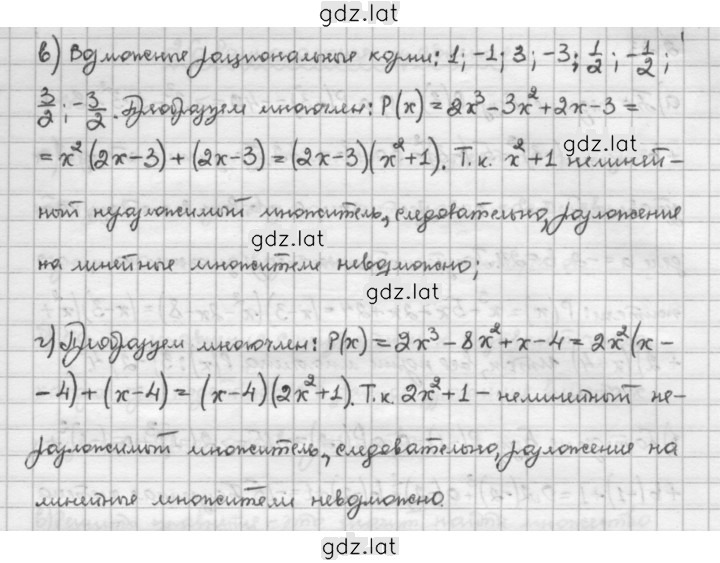 gdz.lat
в) Возможные рациональные корни: 1; -1; 3; -3; 1/2; -1/2;
3/2; -3/2. Преобразуем многочлен: P(x) = 2x³ - 3x² + 2x - 3 =
gdz.lat
= x² (2x - 3) + (2x - 3) = (2x - 3)(x² + 1). Т.к. x² + 1 нелиней-
ный неразложимый множитель, следовательно, разложение
gdz.lat
на линейные множители невозможно;
gdz.lat
г) Преобразуем многочлен: P(x) = 2x³ - 8x² + x - 4 = 2x² (x -
- 4) + (x - 4) = (x - 4)(2x² + 1). Т.к. 2x² + 1 - нелинейный не-
разложимый множитель, следовательно, разложение на
линейные множители невозможно.
gdz.lat